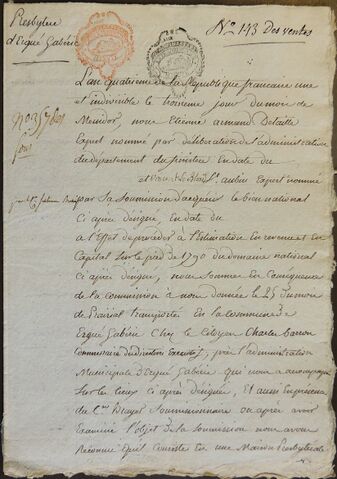 Presbytère
d'Ergué Gabéric
No 143 Des ventes
L'an quatrieme de la Republique francaine une
et indivisible le troisieme jour du mois de
Messidor, nous Etienne armand Detaille
Expert nommé par deliberation de l'administration
du departement du finistere En date du
et Expert nommé
par Sa Soumission d'acquerir le bien national
Ci après designé, En date du
à l'effet de proceder à l'Estimation en revenu et En
Capital Sur le pied de 1790 du domaine national
Ci après designé, nous Sommes en Consequence
de la Commission à nous donnée le 25 du mois
de Prairial transportés En la Commune de
Ergué Gabéric Chez le Citoyen Charles Barron
Commissaire du directoire Executif, près l'administration
Municipale d'Ergué Gabéric qui nous a accompagné
Sur les lieux Ci après designés, Et aussi En presence
du Cen Soumissionnaire ou après avoir
Examiné l'objet de la Soumission nous avons
Reconnu qu'il Consiste en une Maison Presbyterale